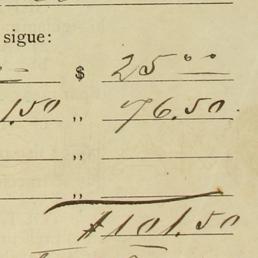 sigue:
$ 25.00
1.50 ,, 76.50
,,
,,
$101.50